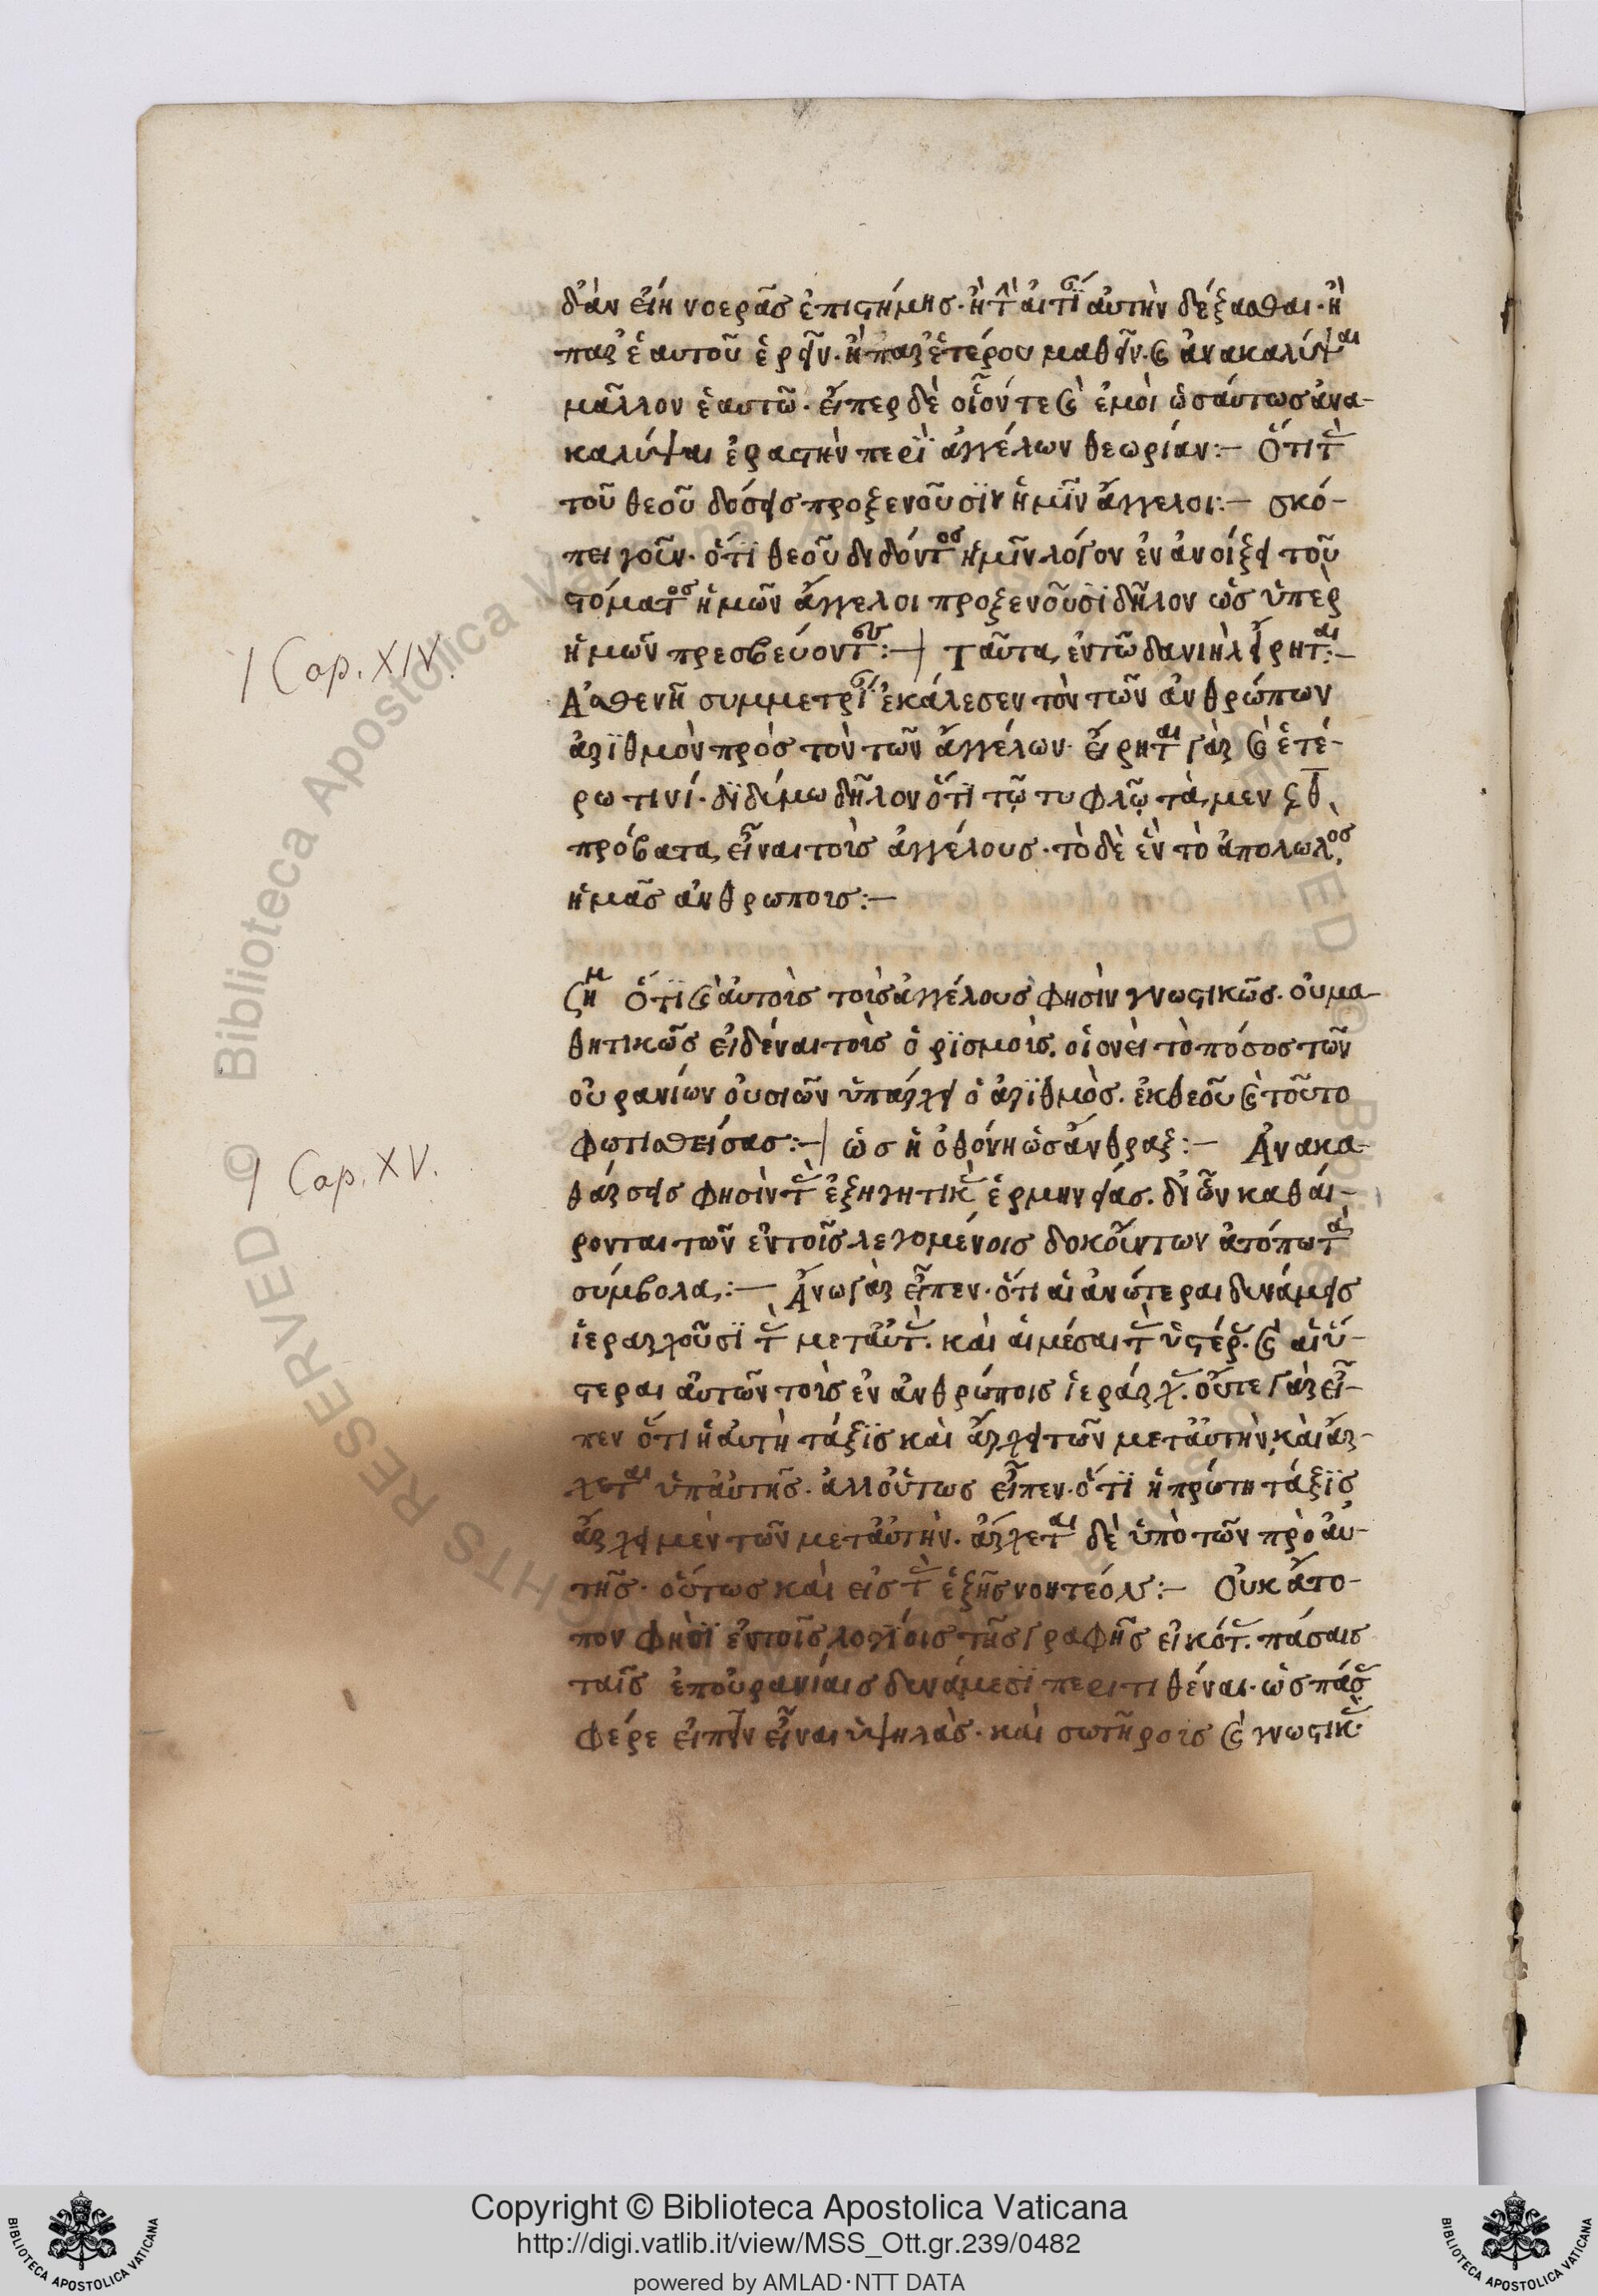 δ' ἂν εἴη νοερᾶς ἐπιστήμης. ἢ τ αἰτί αὐτὴν δέξασθαι. ἢ
παρ' ἑαυτοῦ εὑρεῖν. ἢ παρ' ἑτέρου μαθεῖν. καὶ ἀνακαλύψαι
μᾶλλον ἑαυτῶ. εἴπερ δὲ οἷόν τε καὶ ἐμοὶ ὡσαύτως ἀνα-
καλύψαι ἐραστὴν περὶ ἀγγέλων θεωρίαν:– Ὅτι τὰς
τοῦ θεοῦ δόσεις προξενοῦσιν ἡμῖν ἄγγελοι:– σκό-
πει γοῦν. ὅτι θεοῦ διδόντος ἡμῖν λόγον ἐν ἀνοίξει τοῦ
στόματος ἡμῶν ἄγγελοι προξενοῦσι δῆλον ὡς ὑπὲρ
1 Cap. XIV.
ἡμῶν πρεσβεύοντες:– | Ταῦτα ἐν τῶ δανιὴλ εἴρηται:–
Ἀσθενῆ συμμετρίαν ἐκάλεσεν τὸν τῶν ἀνθρώπων
ἀριθμὸν πρὸς τὸν τῶν ἀγγέλων. εἴρηται γὰρ καὶ ἑτέ-
ρω τινί. διδύμω δῆλον ὅτι τῷ τυφλῷ τὰ μεν ϟθ
πρόβατα, εἶναι τοὺς ἀγγέλους. τὸ δὲ ἓν τὸ ἀπολωλὸς,
ἡμᾶς ἀνθρωπους:–
ση Ὅτι καὶ αὐτοὺς τοὺς ἀγγέλους φησὶν γνωστικῶς. οὐ μα-
θητικῶς εἰδέναι τοὺς ὁρισμοὺς. οἱονεὶ τὸ πόσος τῶν
οὐρανίων οὐσιῶν ὑπάρχει ὁ ἀριθμὸς. ἐκ θεοῦ καὶ τοῦτο
1 Cap. XV.
φωτισθείσας:– | ὡς ἡ ὀθόνη ὡς ἄνθραξ:– Ἀνακα-
θάρσεις φησὶν τὰς ἐξηγητικὰς ἑρμηνείας. δι' ὧν καθαί-
ρονται τῶν ἐν τοῖς λεγομένοις δοκούντων ἀτόπως τὰ
σύμβολα:– Ἄνω γὰρ εἶπεν. ὅτι αἱ ἀνώτεραι δυνάμεις
ἱεραρχοῦσι τὰς μετ' αὐτὰς. καὶ αἱ μέσαι τὰς ὑστέρας. καὶ αἱ ὕ-
στεραι αὐτῶν τοὺς ἐν ἀνθρώποις ἱεράρχας. οὔτε γὰρ εἶ-
πεν ὅτι ἡ αὐτὴ τάξις καὶ ἄρχει τῶν μετ' αὐτὴν, καὶ ἄρ-
χεται ὑπ' αὐτῆς. ἀλλ' οὕτως εἶπεν. ὅτι ἡ πρώτη τάξις
ἄρχει μὲν τῶν μετ' αὐτὴν. ἄρχεται δὲ ὑπὸ τῶν πρὸ αὐ-
τῆς. οὕτως καὶ εἰς τὰς ἑξῆς νοητέον:– Οὐκ ἄτο-
πον φησὶ ἐν τοῖς λογίοις τῆς γραφῆς εἰκότως. πάσαις
ταῖς ἐπουρανίαις δυνάμεσι περιτιθέναι. ὡς πάσας
φέρε εἰπεῖν εἶναι ὑψηλὰς. καὶ σωτῆρους καὶ γνωστικὰς
Copyright © Biblioteca Apostolica Vaticana
http://digi.vatlib.it/view/MSS_Ott.gr.239/0482
powered by AMLAD·NTT DATA